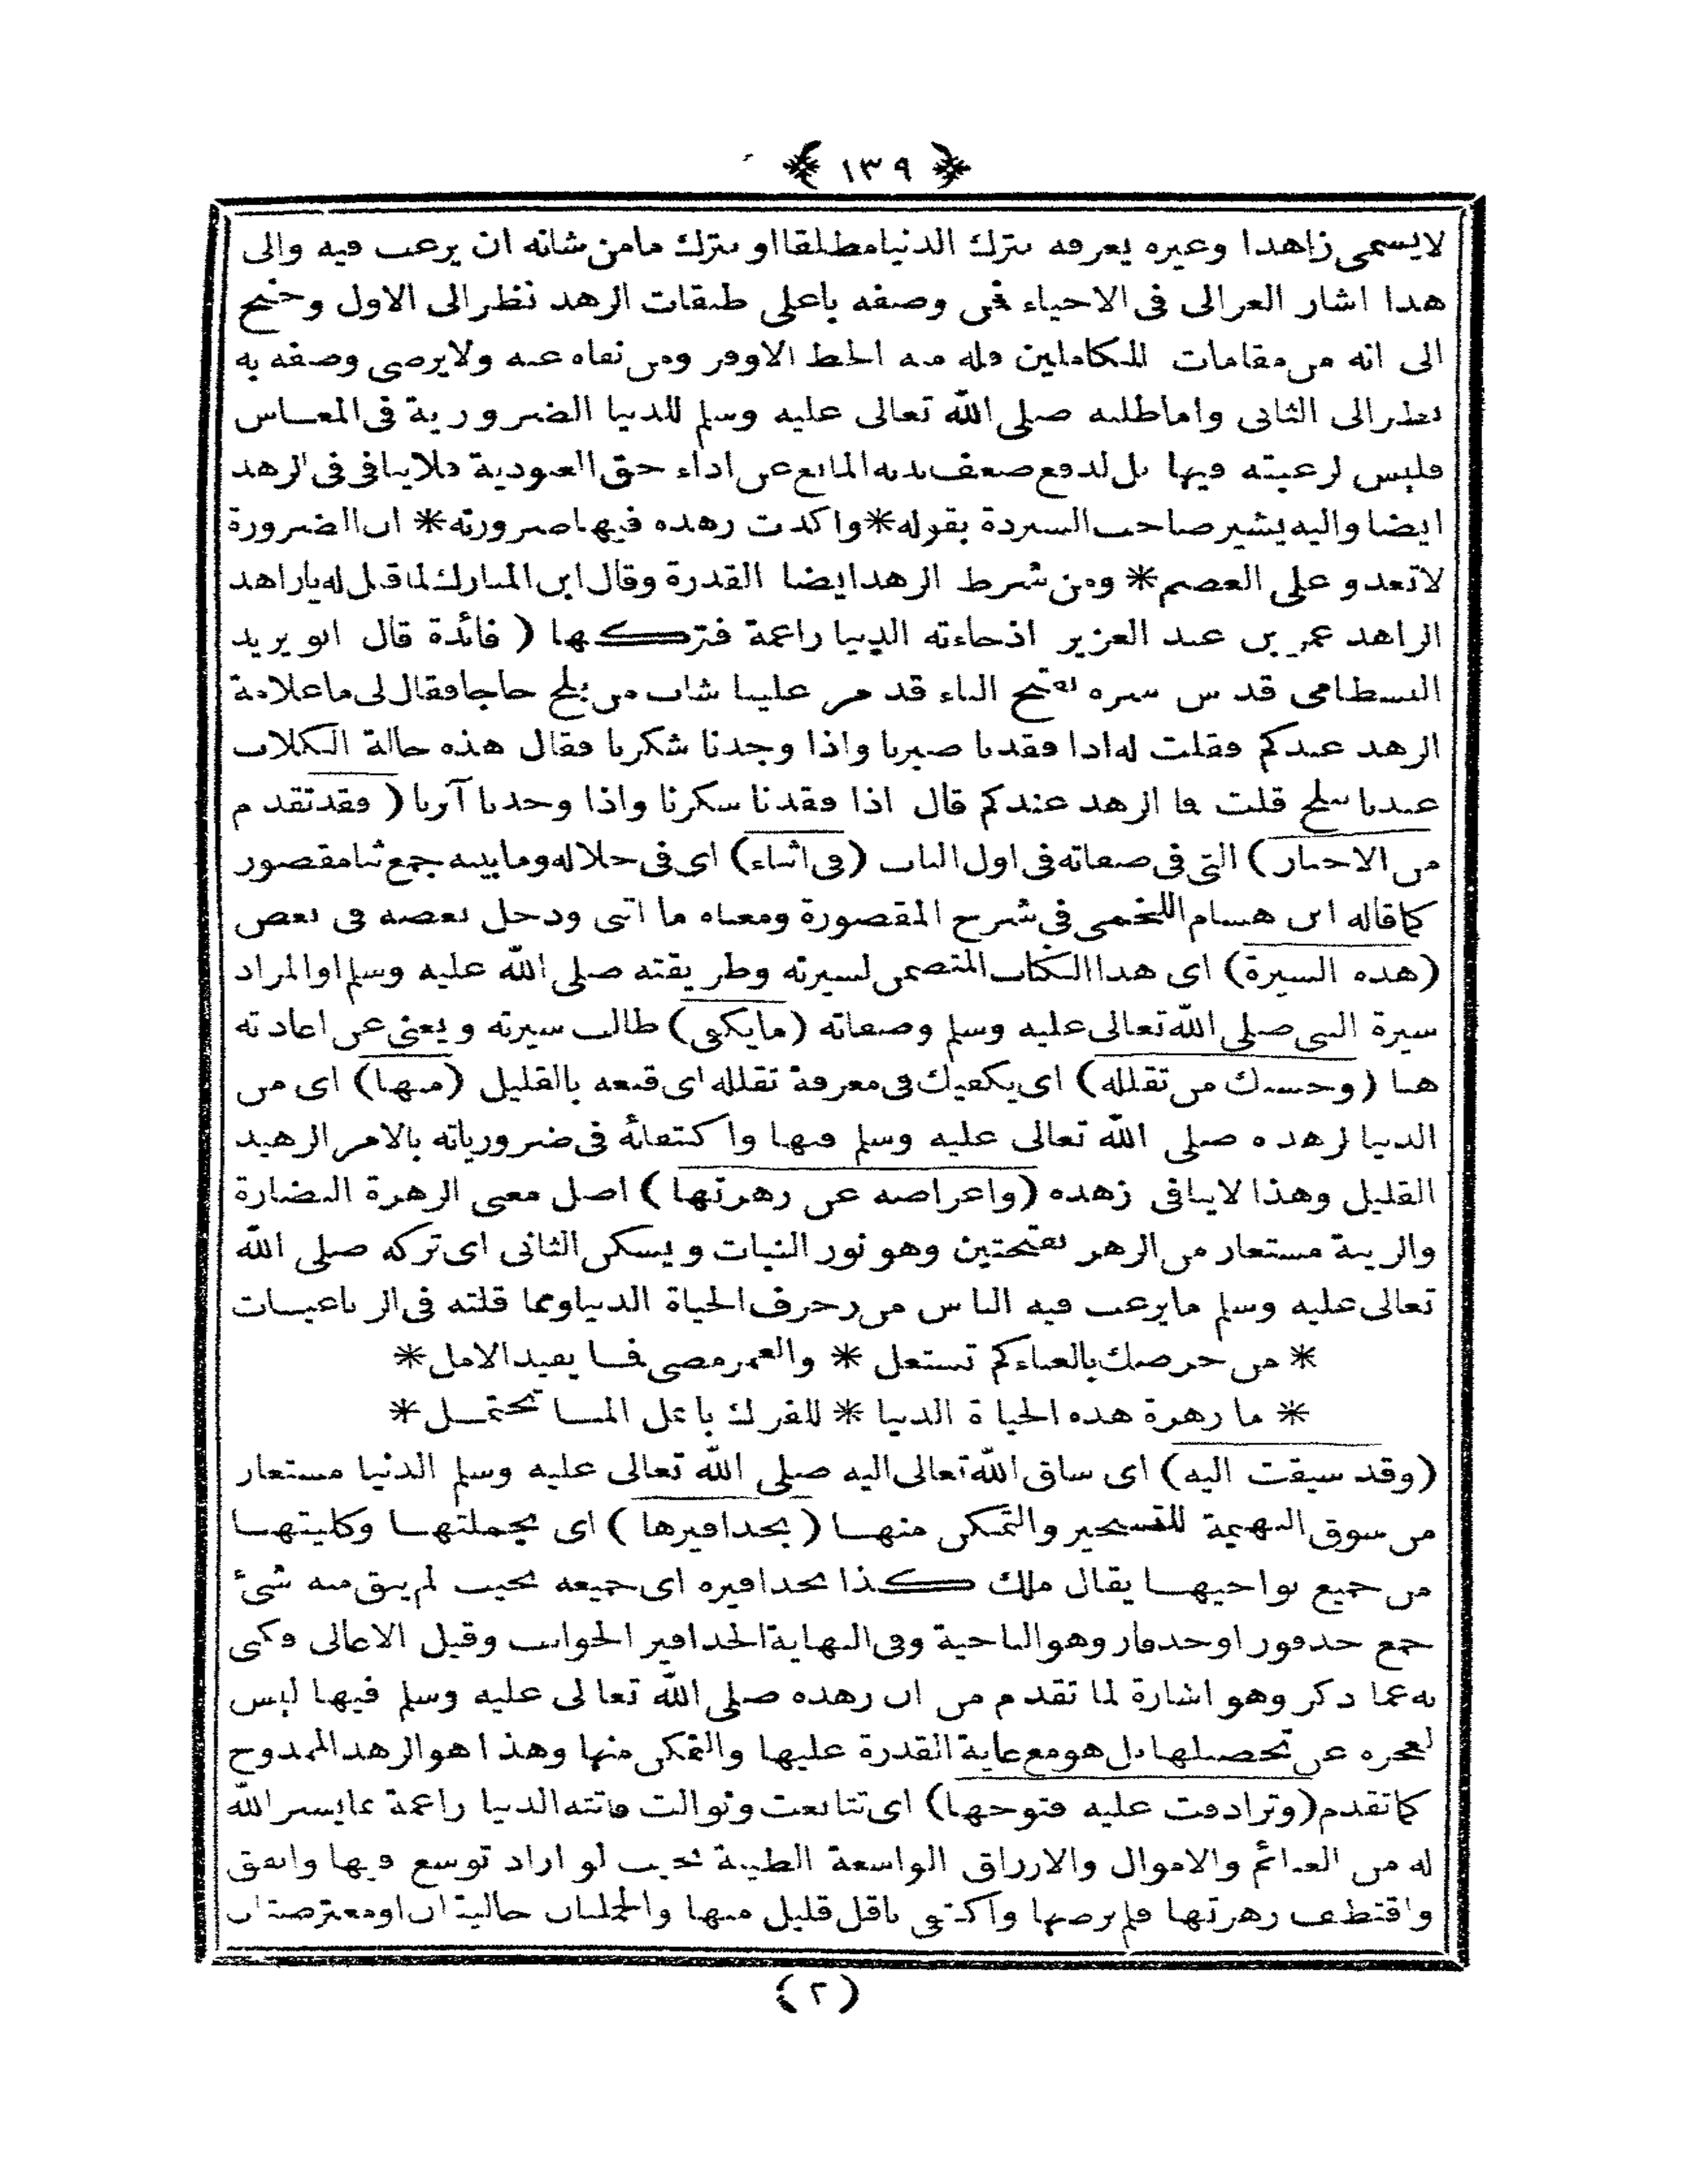 ﴿ ١٣٩ ﴾
لايسمى زاهدا وغيره يعرفه بترك الدنيا مطلقا او بترك ما من شانه ان يرغب فيه والى
هذا اشار الغزالى فى الاحياء فمن وصفه باعلى طبقات الزهد نظر الى الاول وجنح
الى انه من مقامات الكاملين فله منه الحظ الاوفر ومن نفاه عنه ولا يرضى وصفه به
نظر الى الثانى واما طلبه صلى الله تعالى عليه وسلم للدنيا الضرورية فى المعاش
فليس لرغبته فيها بل لدفع ضعف بدنه المانع عن اداء حق العبودية فلا ينافى فى الزهد
ايضا واليه يشير صاحب البردة بقوله * واكدت زهده فيها ضرورته * ان الضرورة
لاتعدو على العصم * ومن شرط الزهد ايضا القدرة وقال ابن المبارك لما قيل له يا زاهد
الزاهد عمر بن عبد العزيز اذ جاءته الدنيا راغمة فتركها ( فائدة قال ابو يزيد
البسطامى قدس سره بفتح الباء قد مر علينا شاب من بلخ حاجا فقال لى ما علامة
الزهد عندكم فقلت له اذا فقدنا صبرنا واذا وجدنا شكرنا فقال هذه حالة الكلاب
عندنا ببلخ قلت فما الزهد عندكم قال اذا فقدنا شكرنا واذا وجدنا آثرنا ( فقد تقدم
من الاخبار ) التى فى صفاته فى اول الباب ( فى اثناء ) اى فى خلاله وما بينه جمع ثنا مقصور
كما قاله ابن هشام اللخمى فى شرح المقصورة ومعناه ما اثنى ودخل بعضه فى بعض
( هذه السيرة ) اى هذا الكتاب المتضمن لسيرته وطريقته صلى الله عليه وسلم او المراد
سيرة النبى صلى الله تعالى عليه وسلم وصفاته ( ما يكفى ) طالب سيرته ويغنى عن اعادته
هنا ( وحسبك من تقلله ) اى يكفيك فى معرفة تقلله اى قنعه بالقليل ( منها ) اى من
الدنيا لزهده صلى الله تعالى عليه وسلم فيها واكتفائه فى ضرورياته بالامر الزهيد
القليل وهذا لا ينافى زهده ( واعراضه عن زهرتها ) اصل معنى الزهرة النضارة
والزينة مستعار من الزهر بفتحتين وهو نور النبات ويسكن الثانى اى تركه صلى الله
تعالى عليه وسلم ما يرغب فيه الناس من زخرف الحياة الدنيا ومما قلته فى الرباعيات
* من حرصك بالعناء كم تستعل * والعمر مضى فما يفيد الامل *
* ما زهرة هذه الحياة الدنيا * للفرك بانمل المنا تحتمل *
( وقد سيقت اليه ) اى ساق الله تعالى اليه صلى الله تعالى عليه وسلم الدنيا مستعار
من سوق البهيمة للتسخير والتمكن منها ( بحذافيرها ) اى بجملتها وكليتها
من جميع نواحيها يقال ملك كذا بحذافيره اى جميعه بحيث لم يبق منه شئ
جمع حذفور او حذفار وهو الناحية وفى النهاية الحذافير الجوانب وقيل الاعالى فكنى
به عما ذكر وهو اشارة لما تقدم من ان زهده صلى الله تعالى عليه وسلم فيها ليس
لعجزه عن تحصيلها بل هو مع غاية القدرة عليها والتمكن منها وهذا هو الزهد الممدوح
كما تقدم ( وترادفت عليه فتوحها ) اى تتابعت وتوالت فاتته الدنيا راغمة بما يسر الله
له من الغنائم والاموال والارزاق الواسعة الطيبة بحيث لو اراد توسع فيها وانفق
واقتطف زهرتها فلم يرضها واكتفى باقل قليل منها والجملتان حاليتان او معترضتان
( ٢ )